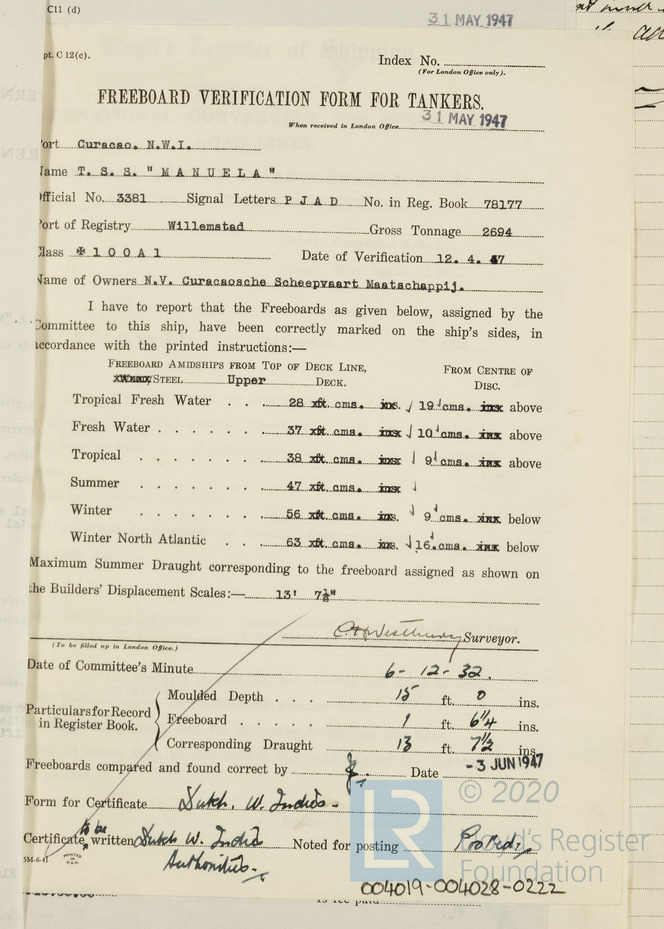 C11 (d)
31 MAY 1947
pt. C 12(c).
Index No.
(For London Office only).
FREEBOARD VERIFICATION FORM FOR TANKERS.
When received in London Office 31 MAY 1947
ort Curacao. N.W.I.
Name T.S.S. "MANUELA"
fficial No. 3381 Signal Letters PJAD No. in Reg. Book 78177
Port of Registry Willemstad Gross Tonnage 2694
Class ✠100A1 Date of Verification 12. 4. 47
Name of Owners N.V. Curacaosche Scheepvaart Maatschappij.
I have to report that the Freeboards as given below, assigned by the
Committee to this ship, have been correctly marked on the ship's sides, in
accordance with the printed instructions:—
FREEBOARD AMIDSHIPS FROM TOP OF DECK LINE,
FROM CENTRE OF
STEEL Upper DECK.
DISC.
Tropical Fresh Water . . . 28 cms. 19 cms. above
Fresh Water . . . . . . 37 cms. 10 cms. above
Tropical . . . . . . . 38 cms. 9 cms. above
Summer . . . . . . . 47 cms.
Winter . . . . . . . 56 cms. 9 cms. below
Winter North Atlantic . . . 63 cms. 16 cms. below
Maximum Summer Draught corresponding to the freeboard assigned as shown on
the Builders' Displacement Scales:— 13' 7½"
Surveyor.
(To be filled up in London Office.)
Date of Committee's Minute 6 - 12 - 32.
Particulars for Record in Register Book.
Moulded Depth . . . 15 ft. 0 ins.
Freeboard . . . . . 1 ft. 6¼ ins.
Corresponding Draught 13 ft. 7½ ins.
Freeboards compared and found correct by Date -3 JUN 1947
Form for Certificate Dutch. W. Indies -
Certificate to be written Dutch W. Indies Authorities. Noted for posting Posted
5M-6.41
© 2020
LR
Lloyd's Register
Foundation
004019-004028-0222
is fee paid